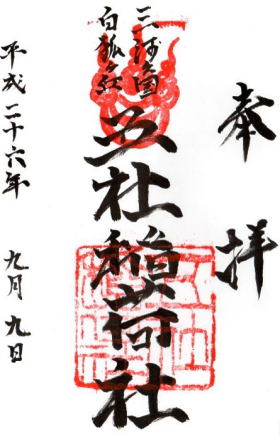 奉拝
三河国
白狐の社
五社稲荷社
平成二十六年 九月九日